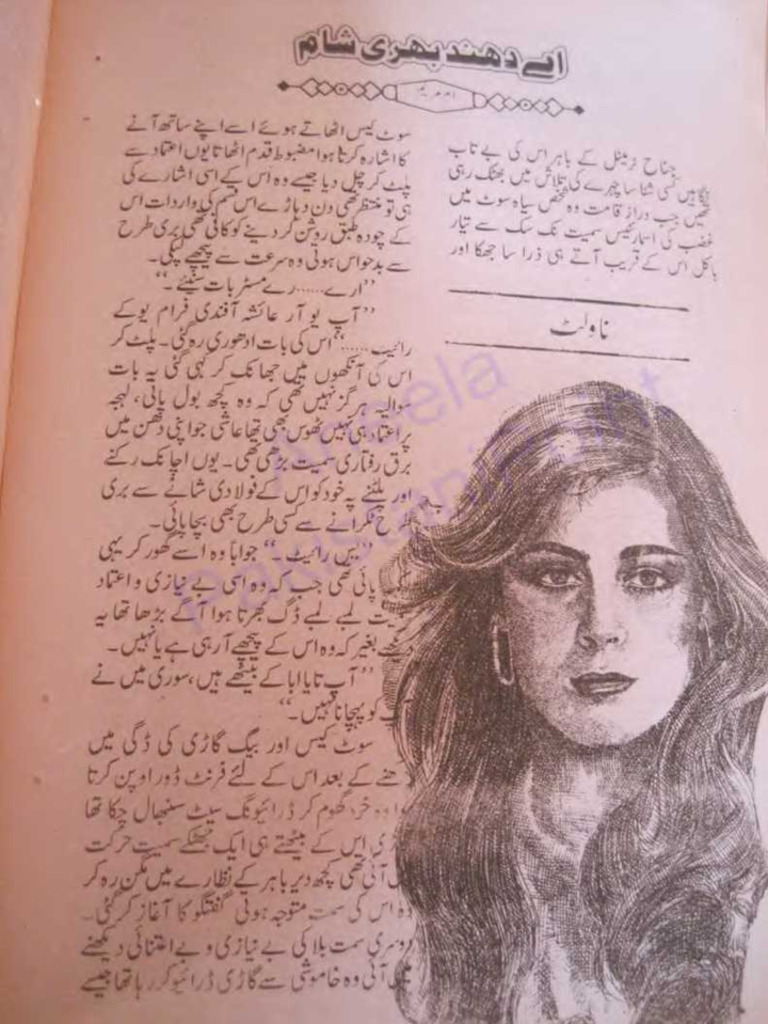 اے دھند بھری شام
ام مریم
جناح ٹرمینل کے باہر اس کی بے تاب
نگاہیں کسی شناسا چہرے کی تلاش میں بھٹک رہی
تھیں جب دراز قامت وہ شخص سیاہ سوٹ میں
غضب کی اسمارٹنیس سمیت تک سک سے تیار
بالکل اس کے قریب آتے ہی ذرا سا جھکا اور
ناولٹ
سوٹ کیس اٹھاتے ہوئے اسے اپنے ساتھ آنے
کا اشارہ کرتا ہوا مضبوط قدم اٹھاتا یوں اعتماد سے
پلٹ کر چل دیا جیسے وہ اس کے اسی اشارے کی
ہی تو منتظر تھی دن دہاڑے اس قسم کی واردات اس
کے چودہ طبق روشن کر دینے کو کافی تھی بری طرح
سے بدحواس ہوتی وہ سرعت سے پیچھے لپکی۔
’’ارے......رے مسٹر بات سنیئے۔‘‘
’’آپ یو آر عائشہ آفندی فرام یوکے
رائیٹ......‘‘ اس کی بات ادھوری رہ گئی۔ پلٹ کر
اس کی آنکھوں میں جھانک کر کہی گئی یہ بات
سوالیہ ہرگز نہیں تھی کہ وہ کچھ بول پاتی، لہجہ
پر اعتماد ہی نہیں ٹھوس بھی تھا عاشی جو اپنی دھن میں
برق رفتاری سمیت بڑھی تھی۔ یوں اچانک رکنے
اور پلٹنے پہ خود کو اس کے فولادی شانے سے بری
طرح ٹکرانے سے کسی طرح بھی بچا پائی۔
’’یس رائیٹ۔‘‘ جواباً وہ اسے گھور کر یہی
پائی تھی جب کہ وہ اسی بے نیازی و اعتماد
سمیت لمبے لمبے ڈگ بھرتا ہوا آگے بڑھا تھا یہ
دیکھے بغیر کہ وہ اس کے پیچھے آ رہی ہے یا نہیں۔
’’آپ تایا ابا کے بیٹے ہیں، سوری میں نے
کو پہچانا نہیں۔‘‘
سوٹ کیس اور بیگ گاڑی کی ڈگی میں
رکھنے کے بعد اس کے لئے فرنٹ ڈور اوپن کرتا
وہ خود گھوم کر ڈرائیونگ سیٹ سنبھال چکا تھا
گاڑی اس کے بیٹھتے ہی ایک جھٹکے سمیت حرکت
میں آئی تھی کچھ دیر باہر کے نظارے میں مگن رہ کر
وہ اس کی سمت متوجہ ہوتی گفتگو کا آغاز کر گئی۔
دوسری سمت بلا کی بے نیازی و بے اعتنائی دیکھنے
میں آئی وہ خاموشی سے گاڑی ڈرائیو کر رہا تھا جیسے